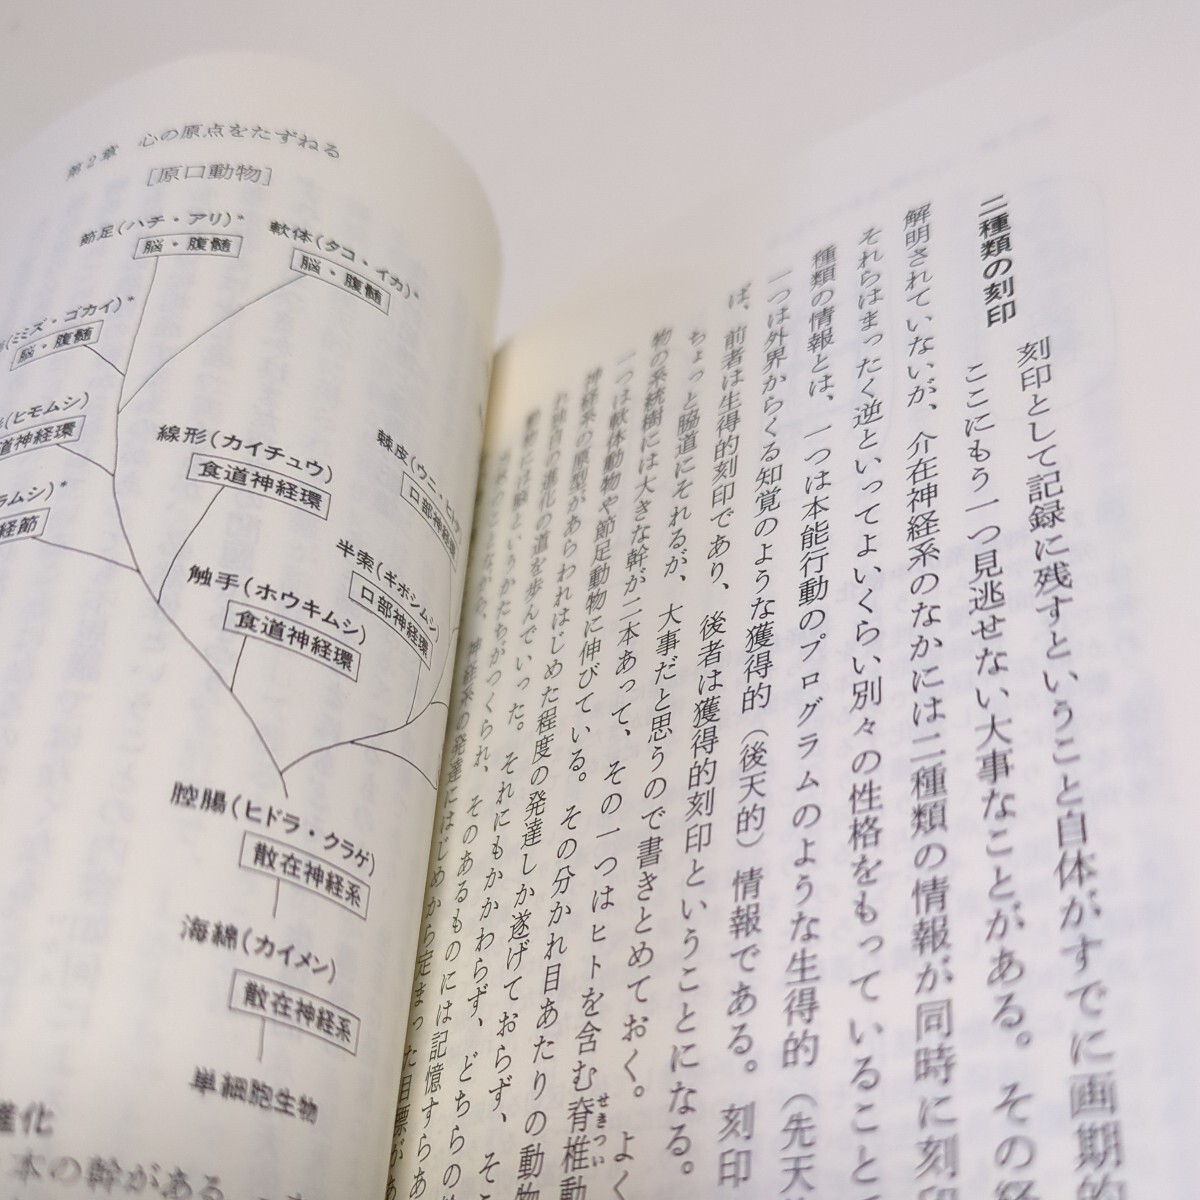 二種類の刻印
刻印として記録に残すということ自体がすでに画期的
ここにもう一つ見逃せない大事なことがある。その
解明されていないが、介在神経系のなかには二種類の情報が同時に刻印
それらはまったく逆といってよいくらい別々の性格をもっていること
種類の情報とは、一つは本能行動のプログラムのような生得的(先天
一つは外界からくる知覚のような獲得的(後天的)情報である。刻印
ば、前者は生得的刻印であり、後者は獲得的刻印ということになる。
ちょっと脇道にそれるが、大事だと思うので書きとめておく。よく
物の系統樹には大きな幹が二本あって、その一つはヒトを含む脊椎動
せきつい
一つは軟体動物や節足動物に伸びている。その分かれ目あたりの動物
神経系の原型があらわれはじめた程度の発達しか遂げておらず、そ
れ独自の進化の道を歩んでいった。それにもかかわらず、どちらの
動物には脳というかたちがつくられ、そのあるものには記憶すらあ
神経系の発達にはじめから定まった目標があ
第2章 心の原点をたずねる
[原口動物]
節足(ハチ・アリ)*
脳・腹髄
軟体(タコ・イカ)*
脳・腹髄
(ミミズ・ゴカイ)*
脳・腹髄
(ヒモムシ)
道神経環
ラムシ)*
経節
線形(カイチュウ)
食道神経環
棘皮(ウニ・ヒトデ
口部神経環
半索(ギボシムシ)
口部神経環
触手(ホウキムシ)
食道神経環
腔腸(ヒドラ・クラゲ)
散在神経系
海綿(カイメン)
散在神経系
単細胞生物
進化
本の幹がある